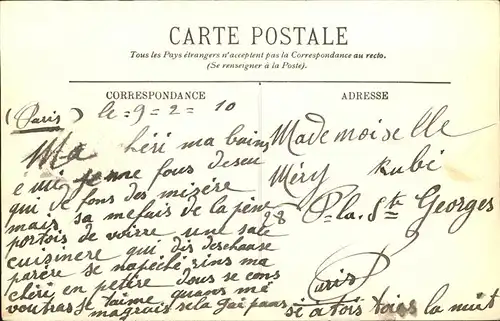 CARTE POSTALE
Tous les Pays étrangers n'acceptent pas la Correspondance au recto.
(Se renseigner à la Poste).
CORRESPONDANCE
ADRESSE
(Paris) le = 9 = 2 = 10
Ma chéri ma bonn
e mi je me fous deseu
qui te fons des misére
mais sa mefais de la pène
portois de voirre une sale
cuizinere qui dis deschause
parére se napéché rins ma
chéri en petite dous se cons
voutras se taime quans mé
magrais sela gai paas
Mademoiselle
Méry Rubé
28 P. la. Ste Georges
Paris
si a tois tous la nuit